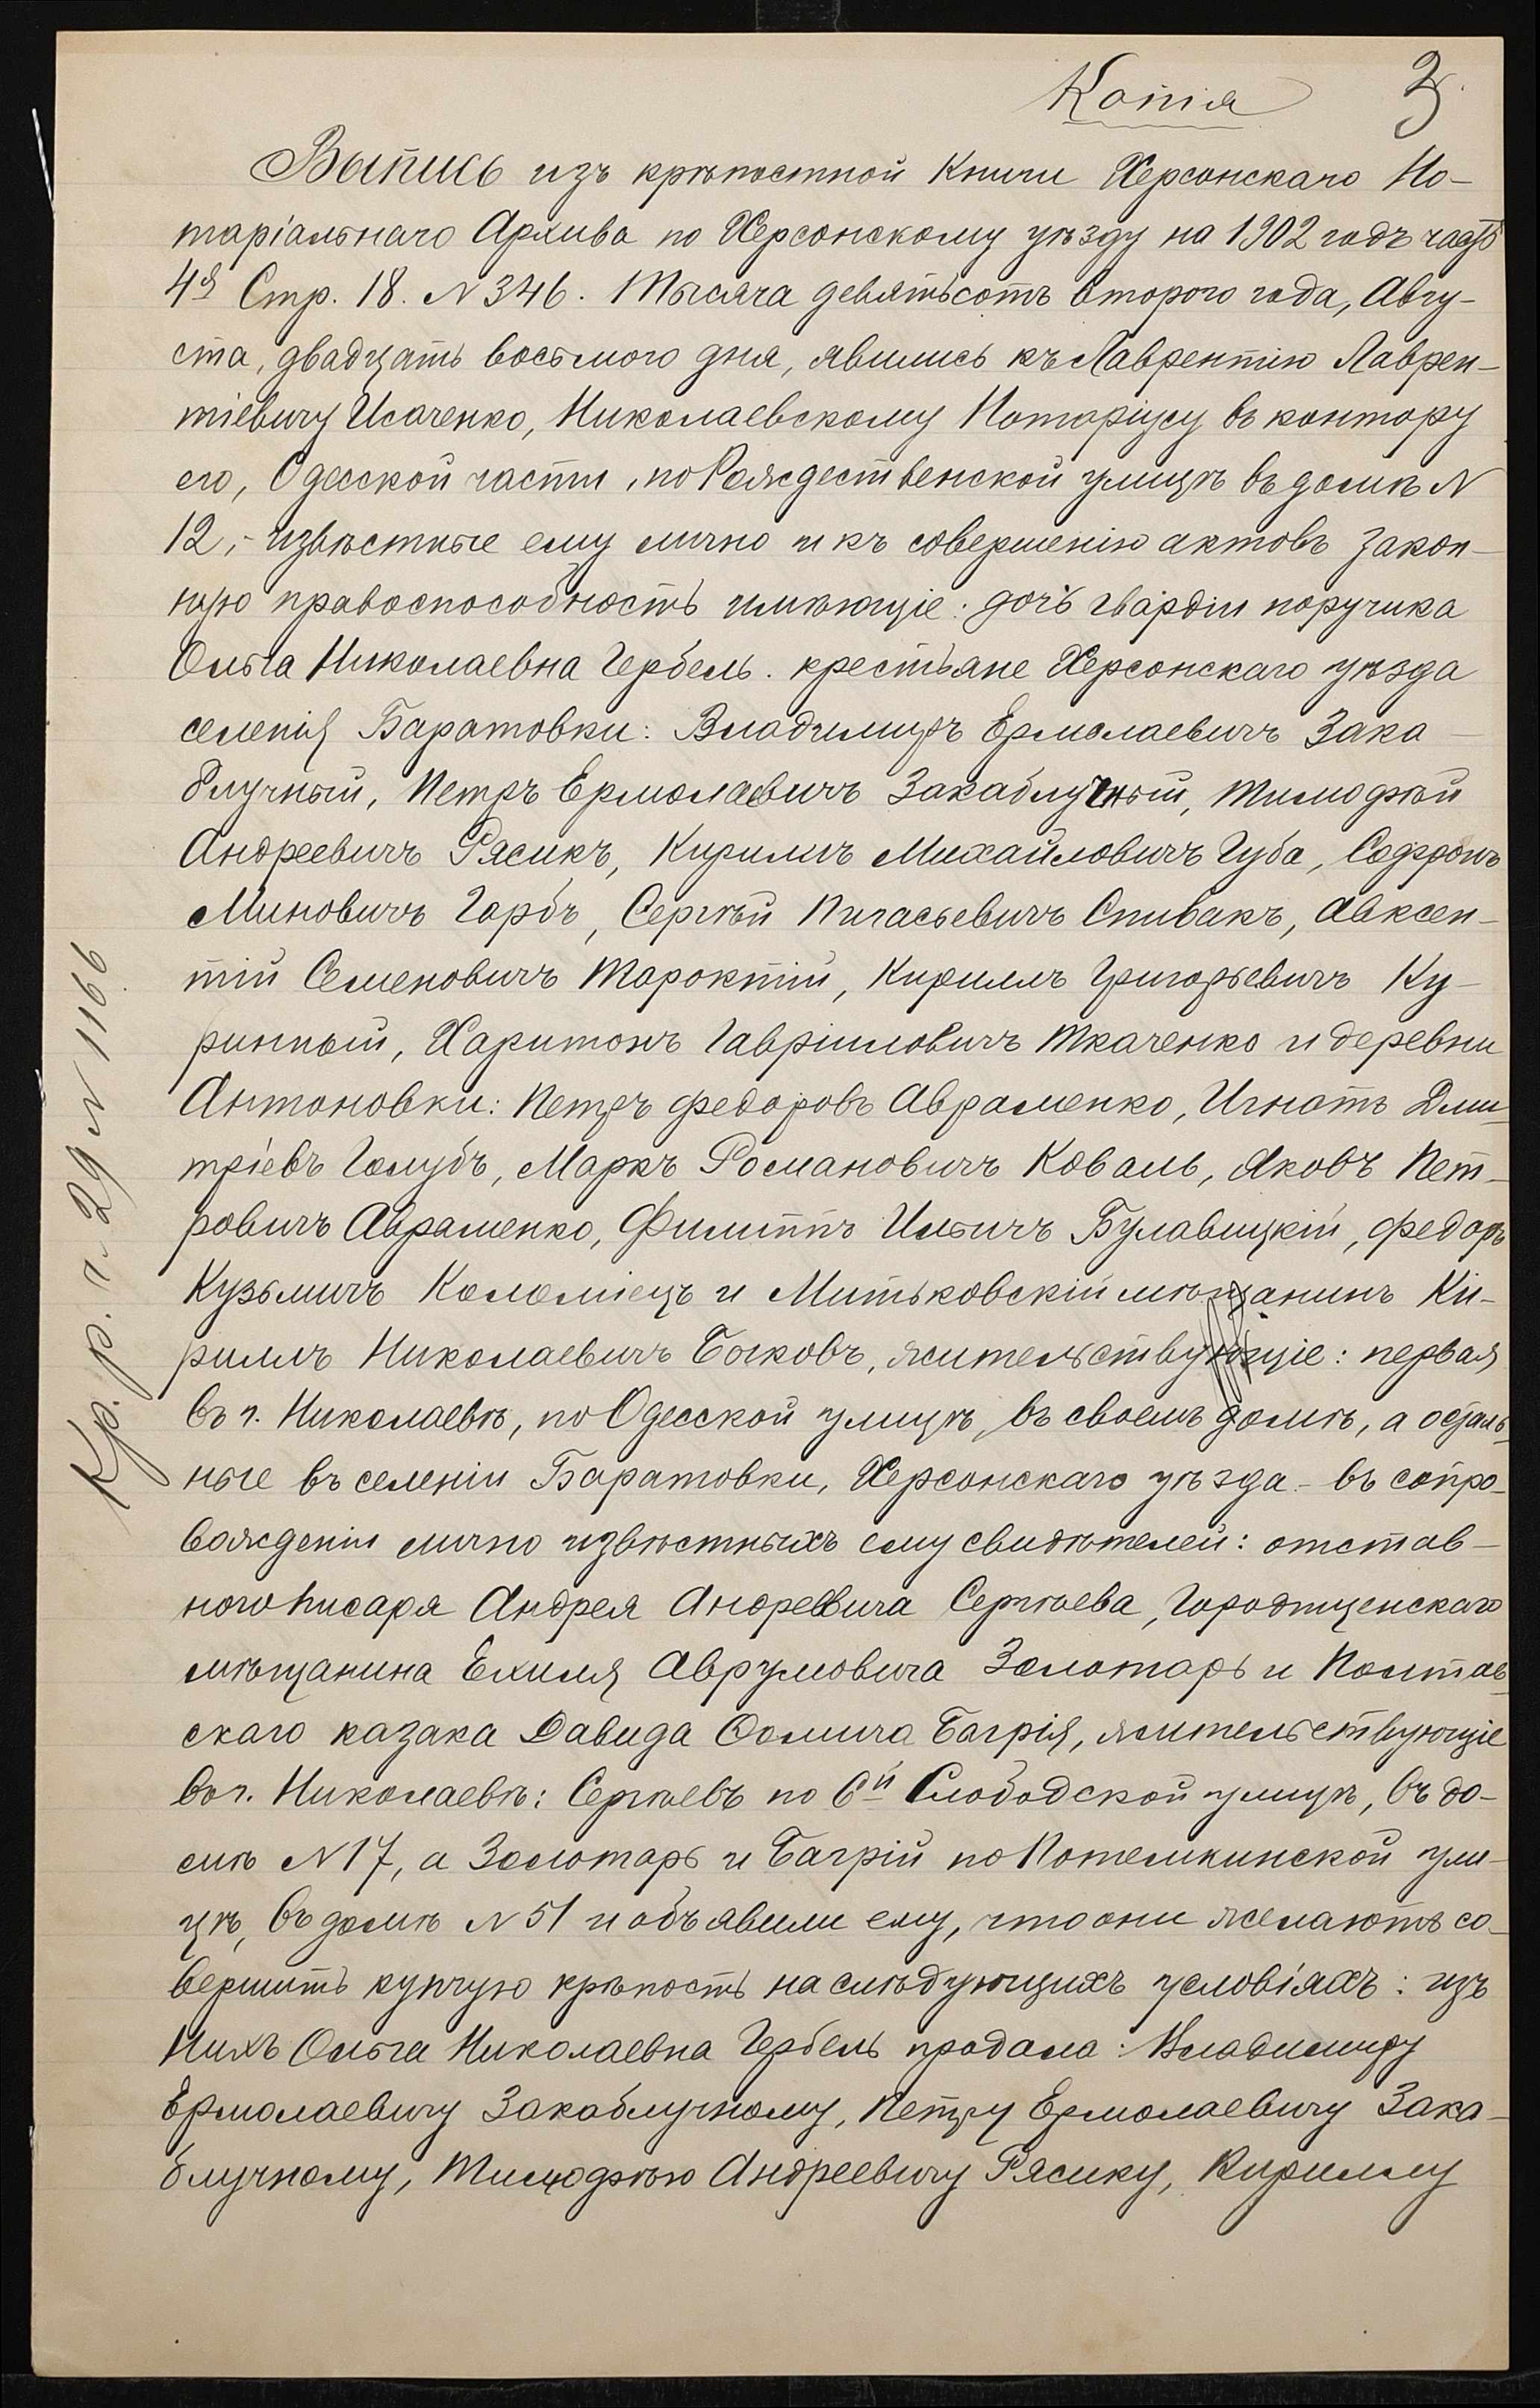 Копія
3
Выпись изъ крѣпостной Книги Херсонскаго Но-
таріальнаго Архива по Херсонскому уѣзду на 1902 годъ часть
4я Стр. 18. N 346. Тысяча девятьсотъ второго года, Авгу-
ста, двадцать восьмого дня, явились къ Лаврентію Лаврен-
тіевичу Исаченко, Николаевскому Нотаріусу въ контору
его, Одесской части, по Рождественской улицѣ въ домѣ N
12,- извѣстные ему лично и къ совершенію актовъ закон-
ную правоспособность имѣющіе: дочь гвардіи поручика
Ольга Николаевна Гербель. крестьяне Херсонскаго уѣзда
селенія Баратовки: Владимиръ Ермолаевичъ Зака-
блучный, Петръ Ермолаевичъ Закаблучный, Тимофѣй
Андреевичъ Рясикъ, Кириллъ Михайловичъ Губа, Софронъ
Миновичъ Гарбъ, Сергѣй Пигасьевичъ Спивакъ, Авксен-
тій Семеновичъ Тароктій, Кириллъ Григорьевичъ Ку-
ринный, Харитонъ Гавріиловичъ Ткаченко и деревни
Антоновки: Петръ Федоровъ Авраменко, Игнатъ Дми-
тріевъ Голубъ, Маркъ Романовичъ Коваль, Яковъ Пет-
ровичъ Авраменко, Филиппъ Ильичъ Булавицкій, Федоръ
Кузьмичъ Коломіецъ и Митьковскій мѣщанинъ Ки-
риллъ Николаевичъ Боковъ, жительствующіе: первая
въ г. Николаевѣ, по Одесской улицѣ, въ своемъ домѣ, а осталь-
ные въ селеніи Баратовки, Херсонскаго уѣзда.- въ сопро-
вожденіи лично извѣстныхъ ему свидѣтелей: отстав-
ного писаря Андрея Андреевича Сергѣева, Городищенскаго
мѣщанина Ехиля Аврумовича Золотарь и Полтав-
скаго казака Давида Фомича Багрія, жительствующіе
въ г. Николаевѣ: Сергѣевъ по 6й Слободской улицѣ, въ до-
мѣ N 17, а Золотарь и Багрій по Потемкинской ули-
цѣ, въ домѣ N 51 и объявили ему, что они желаютъ со-
вершить купчую крѣпость на слѣдующихъ условіяхъ: изъ
нихъ Ольга Николаевна Гербель продала: Владимиру
Ермолаевичу Закаблучному, Петру Ермолаевичу Зака-
блучному, Тимофѣю Андреевичу Рясику, Кириллу
Кр. р. г. 29 N 1166